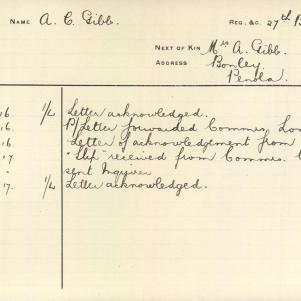 NAME A. C. Gibb. REG. &C. 27th B
NEXT OF KIN Mrs A. Gibb.
ADDRESS Bonley,
Penola.
16. 1/L Letter acknowledged.
16. P/Letter forwarded Commdg. Lon
16. Letter of acknowledgment from
17. "Slip" received from Commdg.
" sent Inquirer
17. 1/L Letter acknowledged.